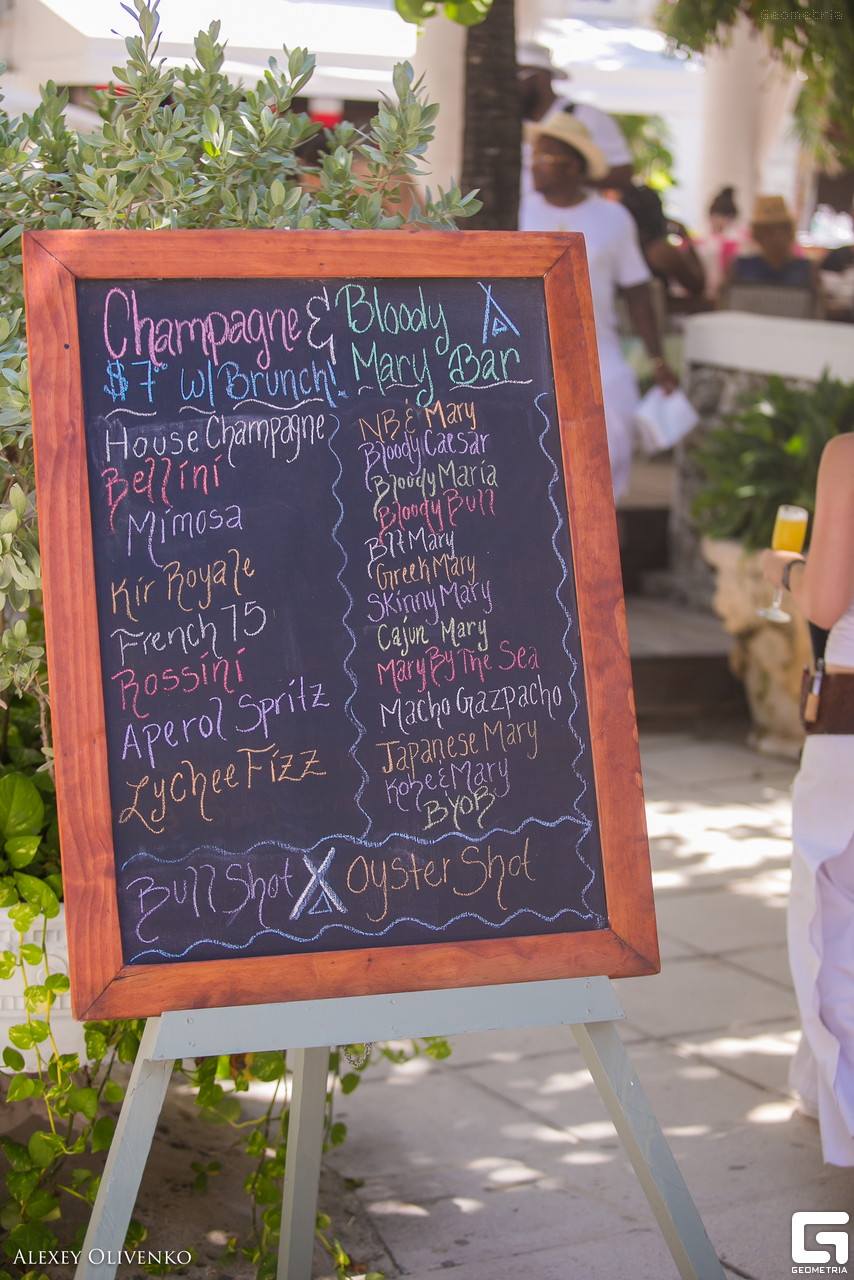 Geometria
Champagne &
$7 w/ Brunch!
House Champagne
Bellini
Mimosa
Kir Royale
French 75
Rossini
Aperol Spritz
Lychee Fizz
Bloody
Mary Bar
NB & Mary
Bloody Caesar
Bloody Maria
Bloody Bull
Blt Mary
Greek Mary
Skinny Mary
Cajun Mary
Mary By The Sea
Macho Gazpacho
Japanese Mary
Kobe & Mary
BYOB
Bull Shot
Oyster Shot
ALEXEY OLIVENKO
GEOMETRIA